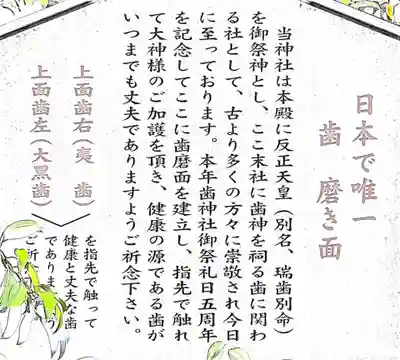 日本で唯一
歯磨き面
当神社は本殿に反正天皇（別名、瑞歯別命）
を御祭神とし、ここ末社に歯神を祠る歯に関わ
る社として、古より多くの方々に崇敬され今日
に至っております。本年歯神社御祭礼日五周年
を記念してここに歯磨面を建立し、指先で触れ
て大神様のご加護を頂き、健康の源である歯が
いつまでも丈夫でありますようご祈念下さい。
上面歯右（夷　歯）
上面歯左（大黒歯）
を指先で触って
健康と丈夫な歯
でありま
ご祈